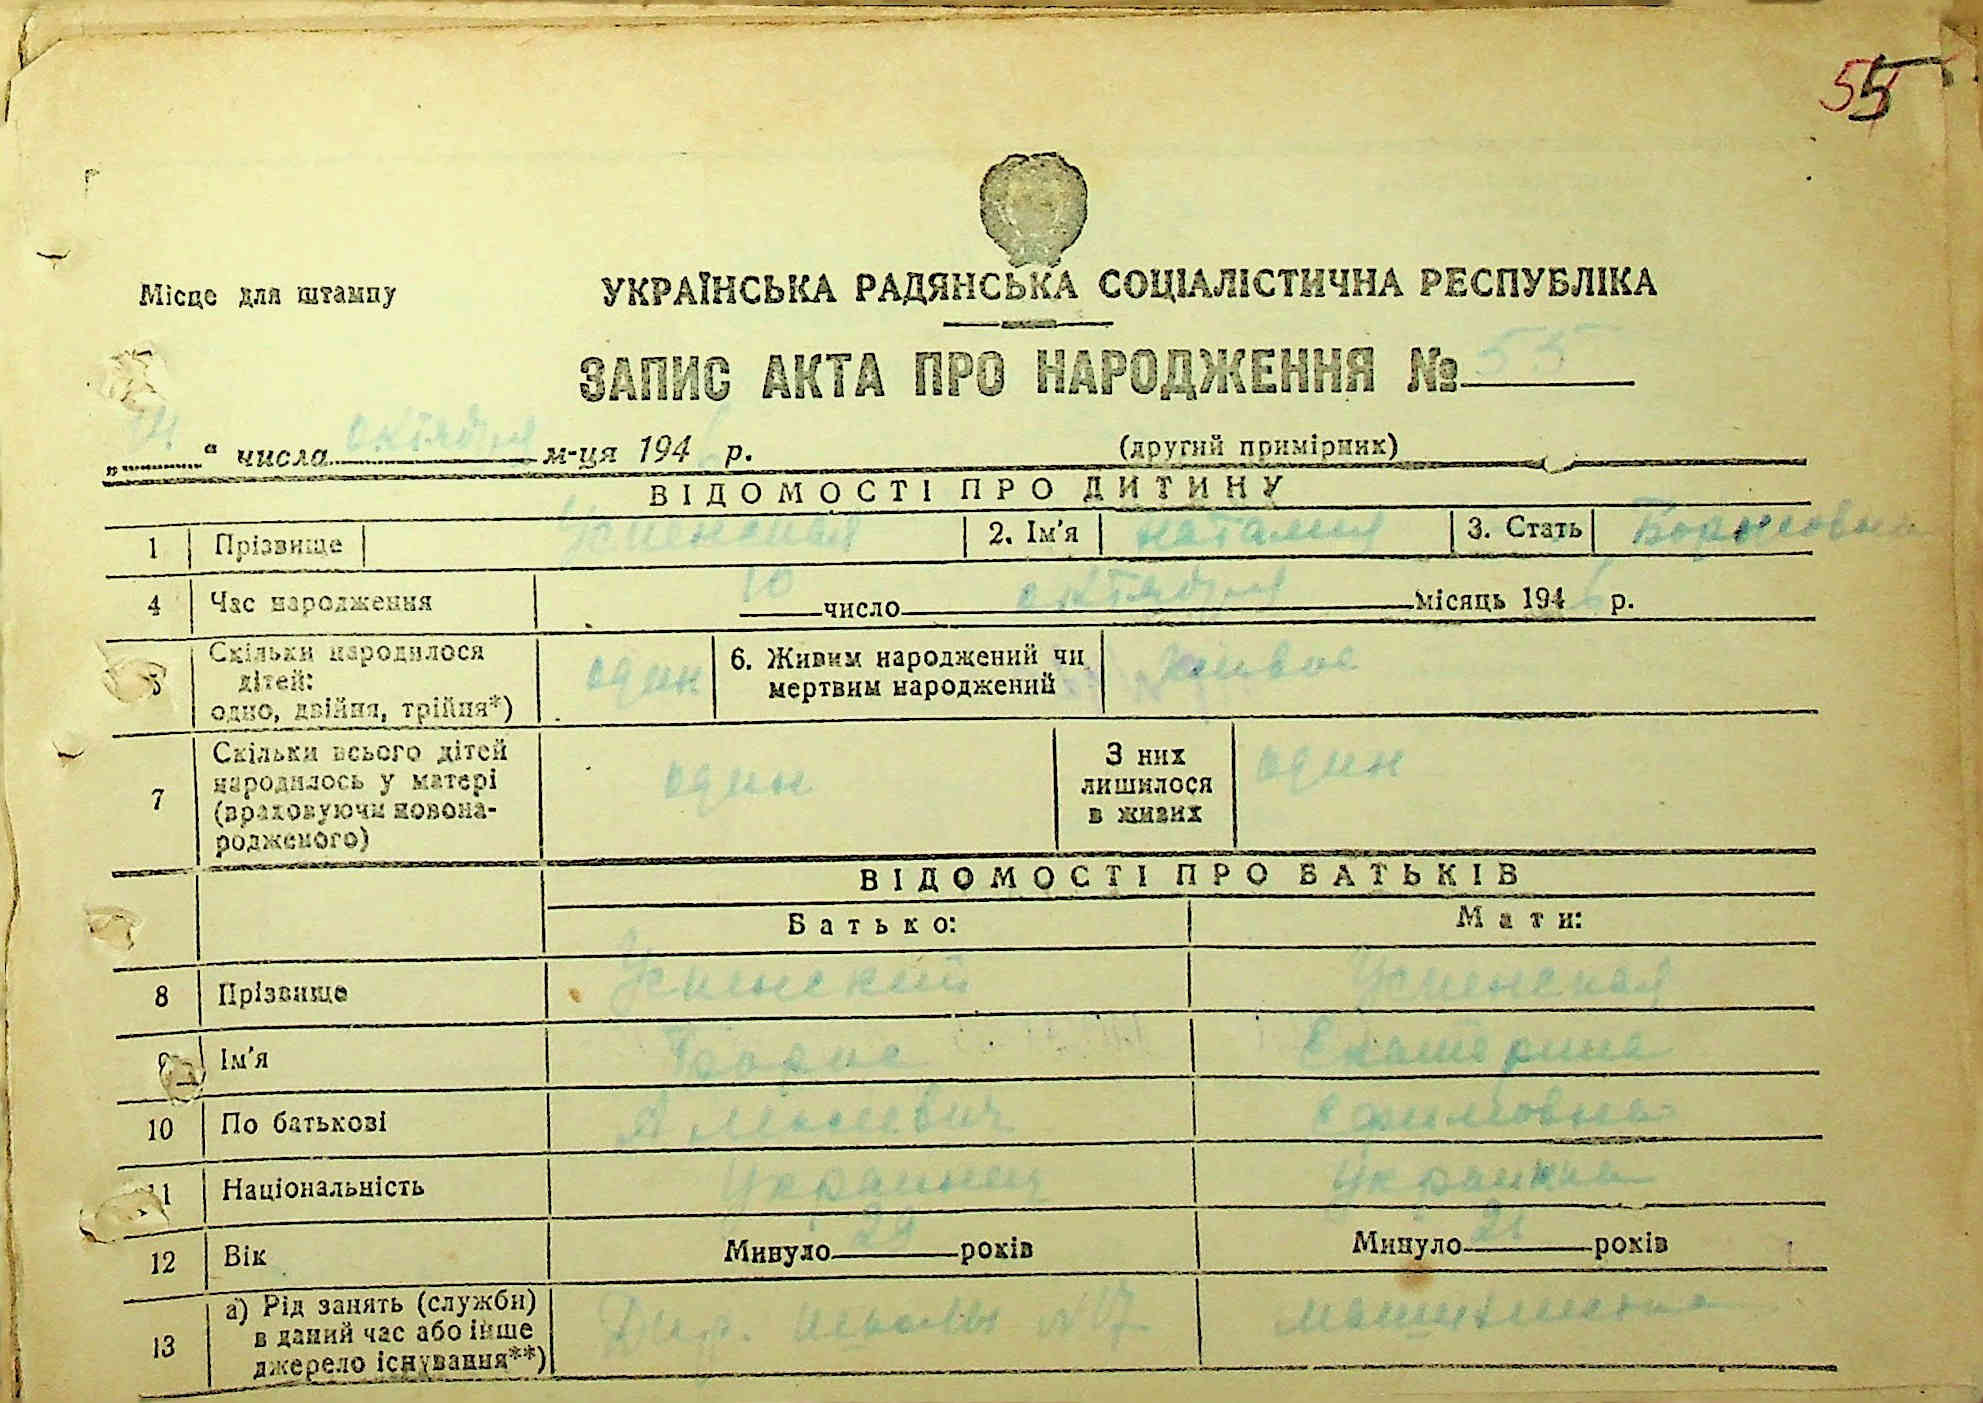 55
Місце для штампу
УКРАЇНСЬКА РАДЯНСЬКА СОЦІАЛІСТИЧНА РЕСПУБЛІКА
ЗАПИС АКТА ПРО НАРОДЖЕННЯ № 55
„14" числа октября м-ця 1946 р. (другий примірник)
ВІДОМОСТІ ПРО ДИТИНУ
1 Прізвище Успенская 2. Ім'я Наталия 3. Стать Борисовна
4 Час народження 10 число октября місяць 1946 р.
5 Скільки народилося дітей: одно, двійня, трійня*) один 6. Живим народжений чи мертвим народжений живое
7 Скільки всього дітей народилось у матері (враховуючи новонародженого) один З них лишилося в живих один
ВІДОМОСТІ ПРО БАТЬКІВ
Батько: Мати:
8 Прізвище Успенский Успенская
9 Ім'я Борис Екатерина
10 По батькові Ефимовна
11 Національність Украинец Украинка
12 Вік Минуло 29 років Минуло 21 років
13 а) Рід занять (служби) в даний час або інше джерело існування**) Дир. школы №17 машинистка